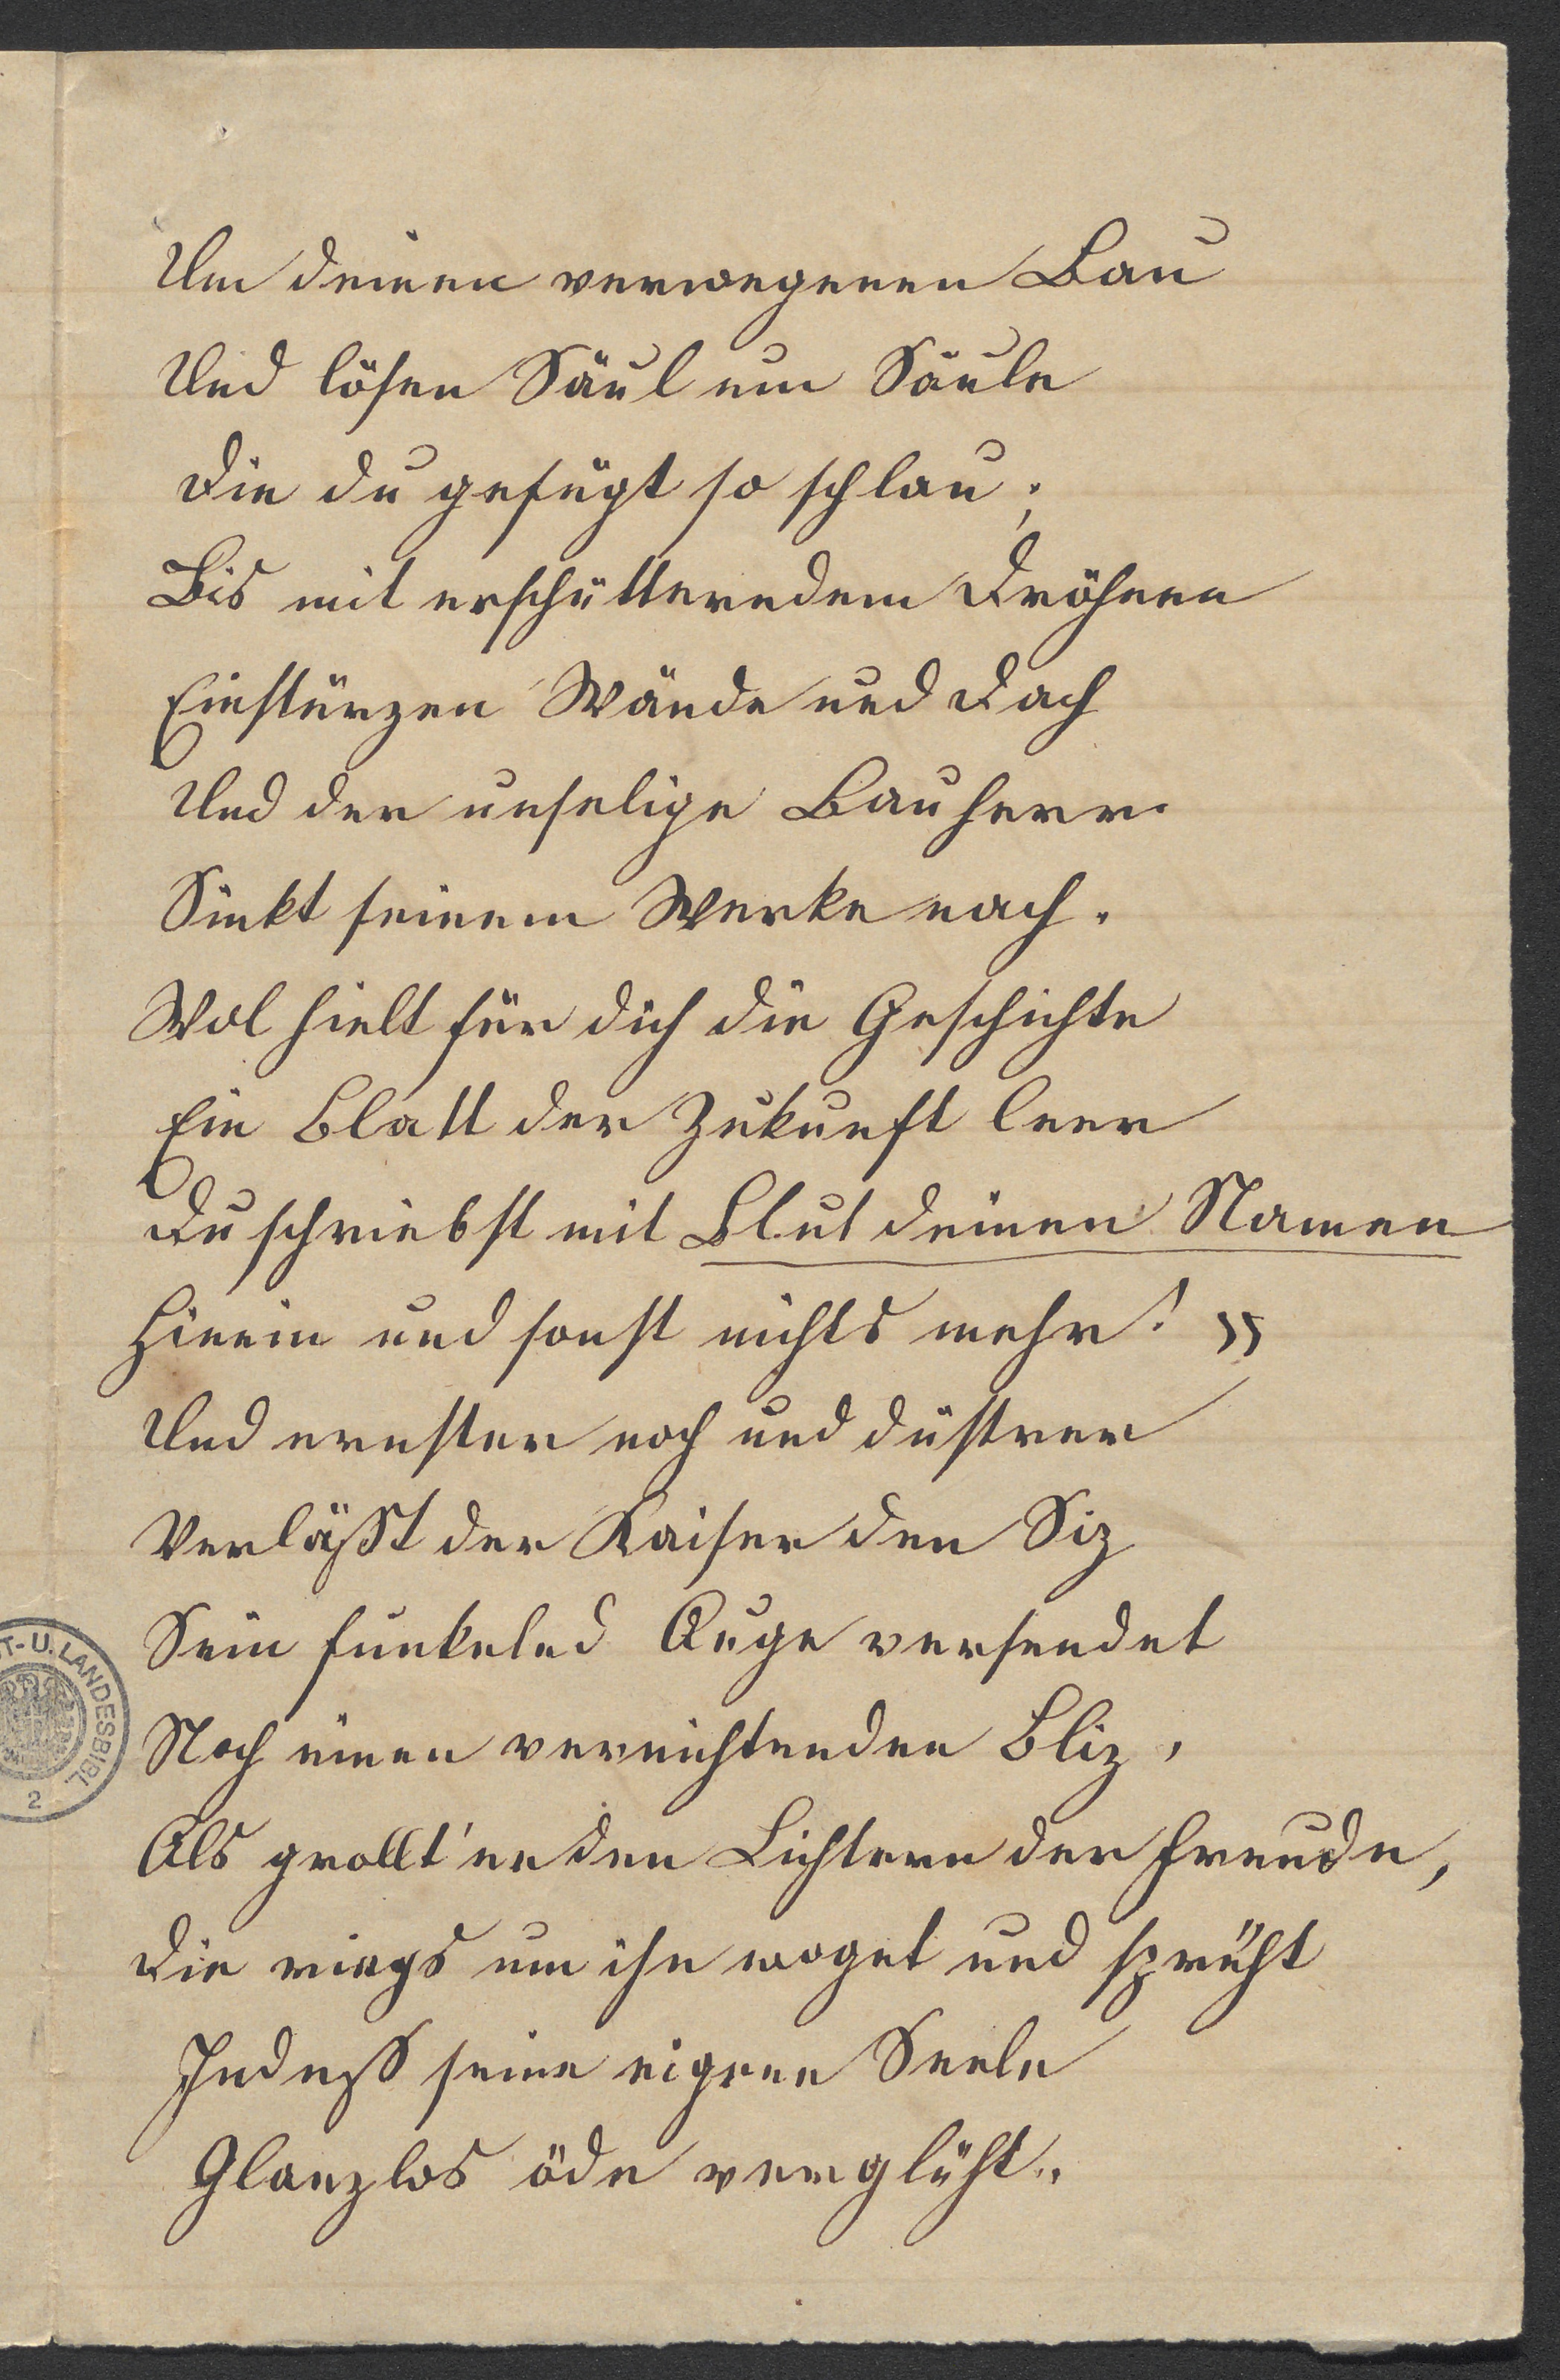 Um deinen verwegenen Bau
Und lösen Säul um Säule
Die du gefügt so schlau;
Bis mit erschütterndem Dröhnen
Einstürzen Wände und Dach
Und der unselige Bauherr
Sinkt seinem Werke nach.
Wol hielt für dich die Geschichte
Ein Blatt der Zukunft leer
Du schriebst mit Blut deinen Namen
Hierin und sonst nichts mehr! "
Und ernster noch und düstrer
Verläßt der Kaiser den Siz
Sein funkelnd Auge versendet
Noch einen vernichtenden Bliz,
Als grollt' er den Lichtern der Freude,
Die rings um ihn woget und sprüht
Indeß seine eigene Seele
Glanzlos öde verglüht..
T.-U. LANDESBIBL.
2